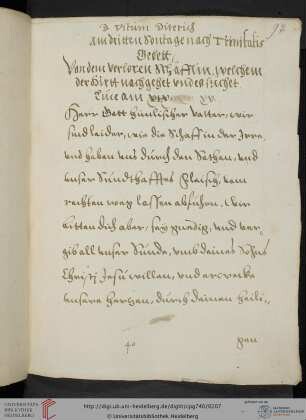 D Vitum Diterich
92
Am dritten Sontage nach Trinitatis
Gebett,
Von dem verloren Schäfflin, welchem
der Hirtt nachgehet vnd es suchet
Luce am XV.
Herr Gott himlischer Vatter, wir
sind leider, wie die Schaff in der Irre,
vnd haben vns durch den Sathan, vnd
vnser Sündthafftes Fleisch, vom
rechten weg lassen abfuhren, Wir
bitten dich aber, sey gnedig, vnd ver,,
gib all vnser Sünde, vmb deines Sohns
Christj Jesu willen, vnd erwecke
vnsere hertzen, durch deinen heili,,
40
gen
UNIVERSITÄTS-
BIBLIOTHEK
HEIDELBERG
http://digi.ub.uni-heidelberg.de/diglit/cpg740/0207
© Universitätsbibliothek Heidelberg